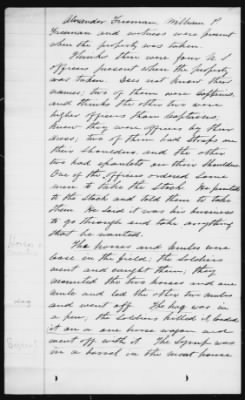 Alexander Freeman, William P
Freeman and witness were present
when the property was taken.
Thinks there were four U S
officers present when the property
was taken. Does not know their
names; two of them were Captains,
and thinks the other two were
higher officers than Captains;
knew they were officers by their
dress; two of them had straps on
their shoulders and the other
two had epaulets on their shoulders
One of the officers ordered some
men to take the stock. He pointed
to the stock and told them to take
them. He said it was his business
to go through and take anything
that he wanted.
The horses and mules were
loose in the field; the soldiers
went and caught them; they
mounted the two horses and one
mule and led the other two mules
and went off. The hog was in
a pen; the soldiers killed it loaded
it on a one horse wagon and
went off with it. The syrup was
in a barrel in the meat house
hog
Syrup